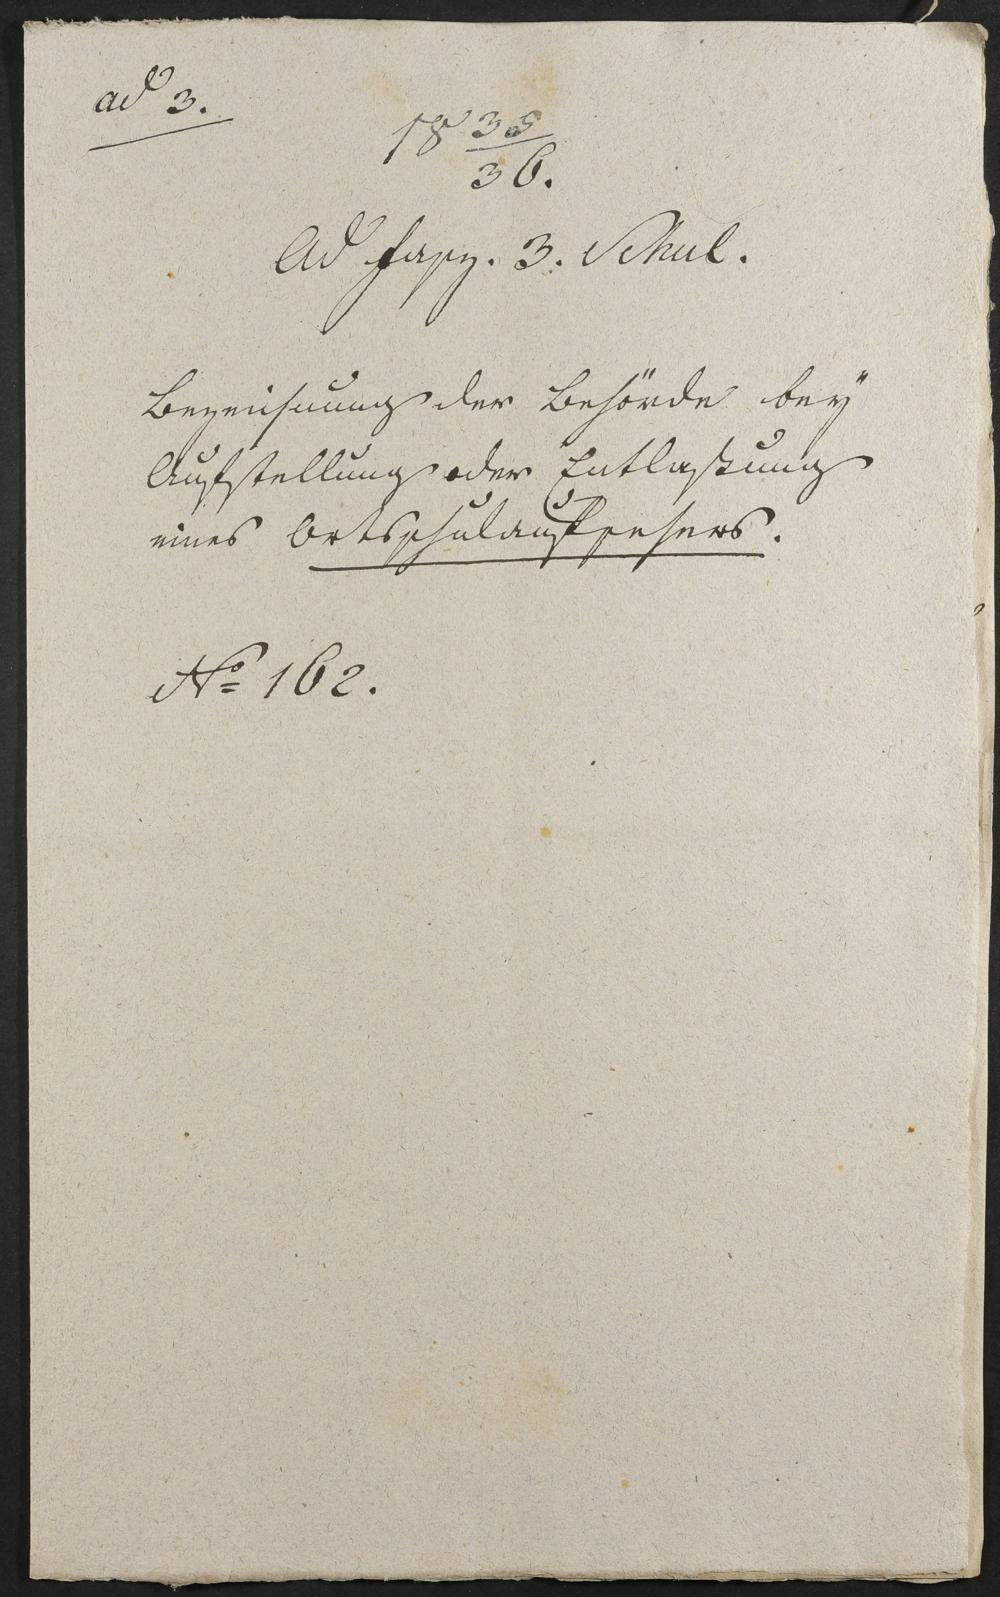 ad 3.
18 35/36.
Ad Fasz. 3. Schul.
Bezeichnung der Behörde beÿ
Aufstellung oder Entlaßung
eines Ortsschulaufsehers.
No 162.